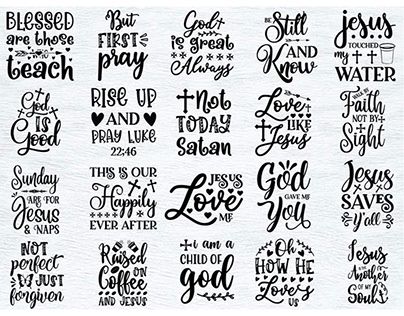 BLESSED
are those
who
teach
But
FIRST
pray
God
is Great
Always
BE Still
AND
Know
jesus
TOUCHED
my
WATER
God
IS
Good
RISE UP
AND
PRAY LUKE
22:46
Not
TODAY
Satan
Love
LIKE
Jesus
WALK BY
Faith
NOT BY
Sight
Sunday
ARE FOR
JESUS
& NAPS
THIS IS OUR
Happily
EVER AFTER
JESUS
Love
ME
God
GAVE ME
You
Jesus
SAVES
Y'all
NOT
perfect
JUST
forgiven
Raised
ON
COFFEE
AND JESUS
i am a
CHILD OF
god
Oh
HOW HE
Loves
US
Jesus
is the
Another
OF MY
Soul